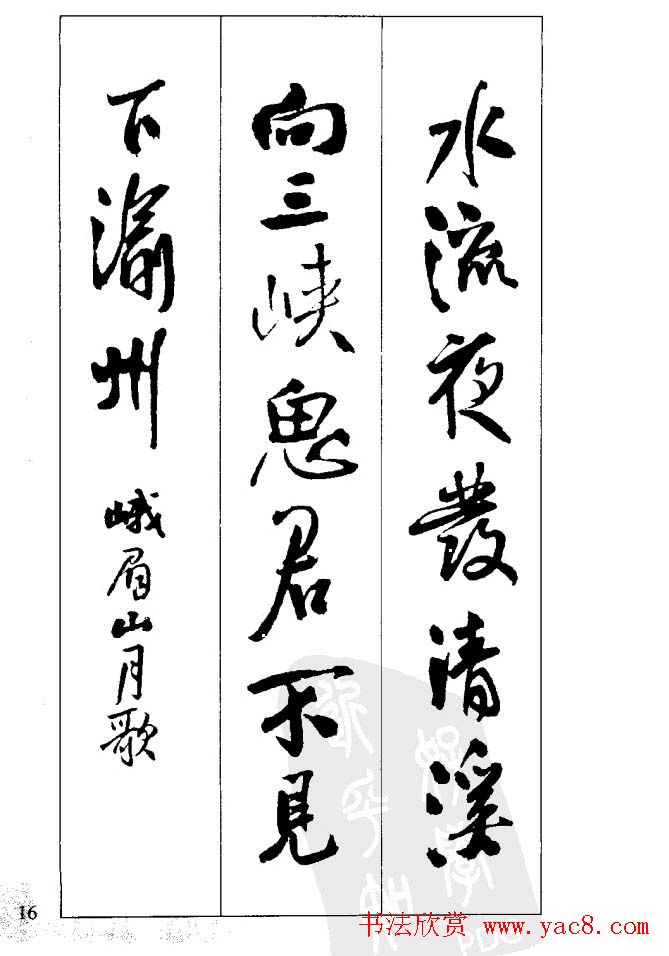 水流夜發清溪
向三峽思君不見
下渝州
峨眉山月歌
16
书法欣赏 www.yac8.com